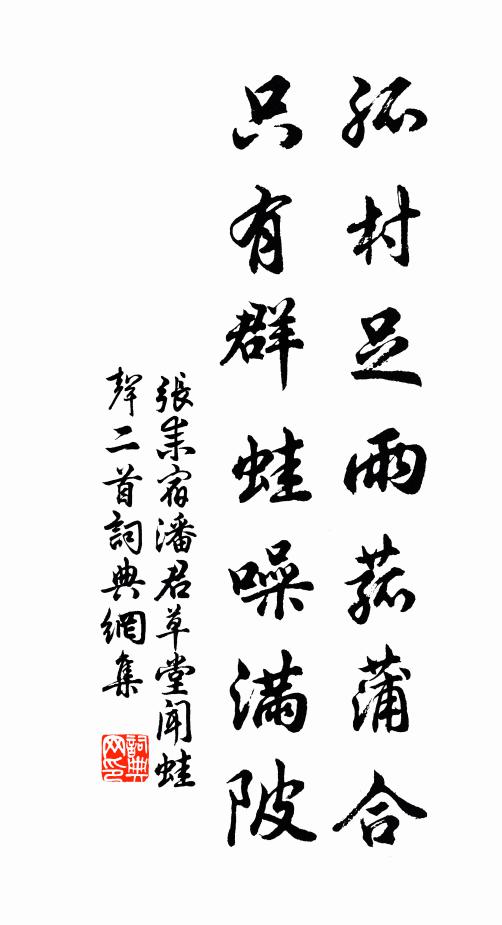 孤村足雨菰蒲合
只有群蛙噪满陂
張耒宿潘君草堂闻蛙
聲二首詞典網集
詞典
网印